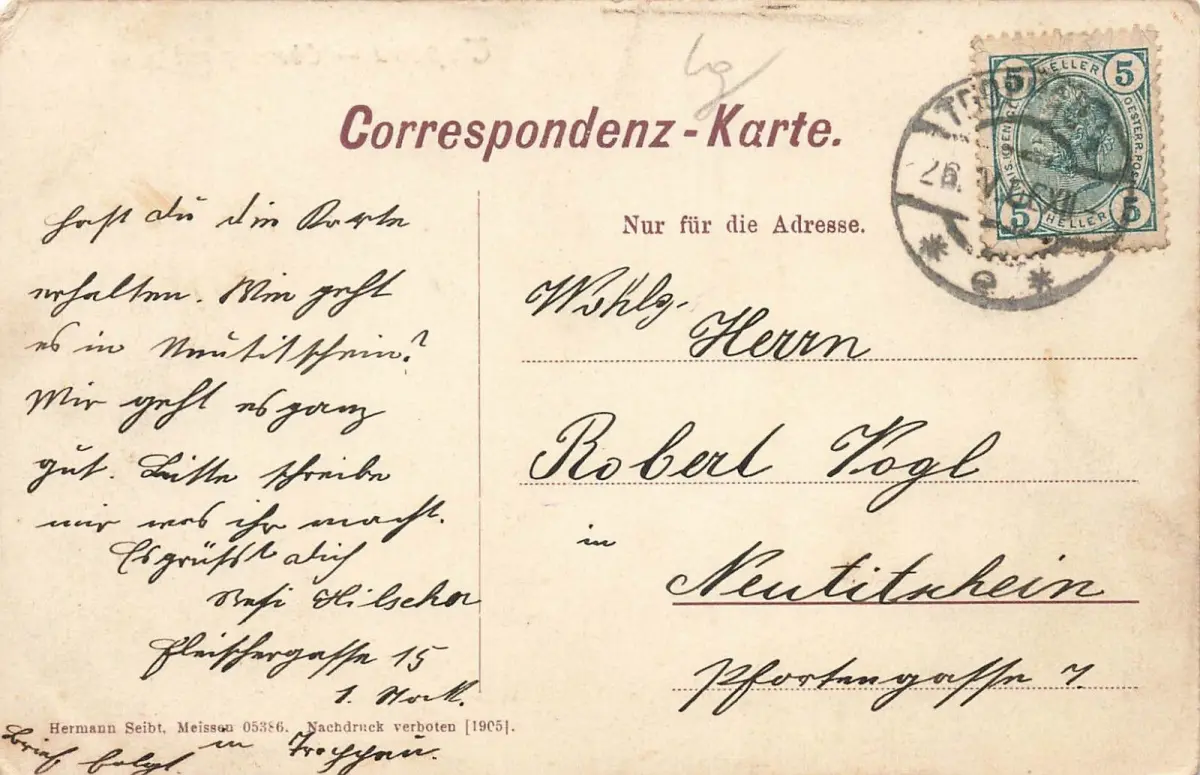 Correspondenz-Karte.
Nur für die Adresse.
5 HELLER 5
5 HELLER 5
26. V
e
Hast du die Karte
erhalten. Wie geht
es in Neutitschein?
Mir geht es ganz
gut. Bitte schreibe
mir was ihr macht.
Es grüßt dich
Resi Hilscher
Fleischergasse 15
1. Stock.
in Troppau.
Brief folgt.
Wohlg.
Herrn
Robert Vogl
in
Neutitschein
Pfortengasse 7.
Hermann Seibt, Meissen 05386. Nachdruck verboten [1905].